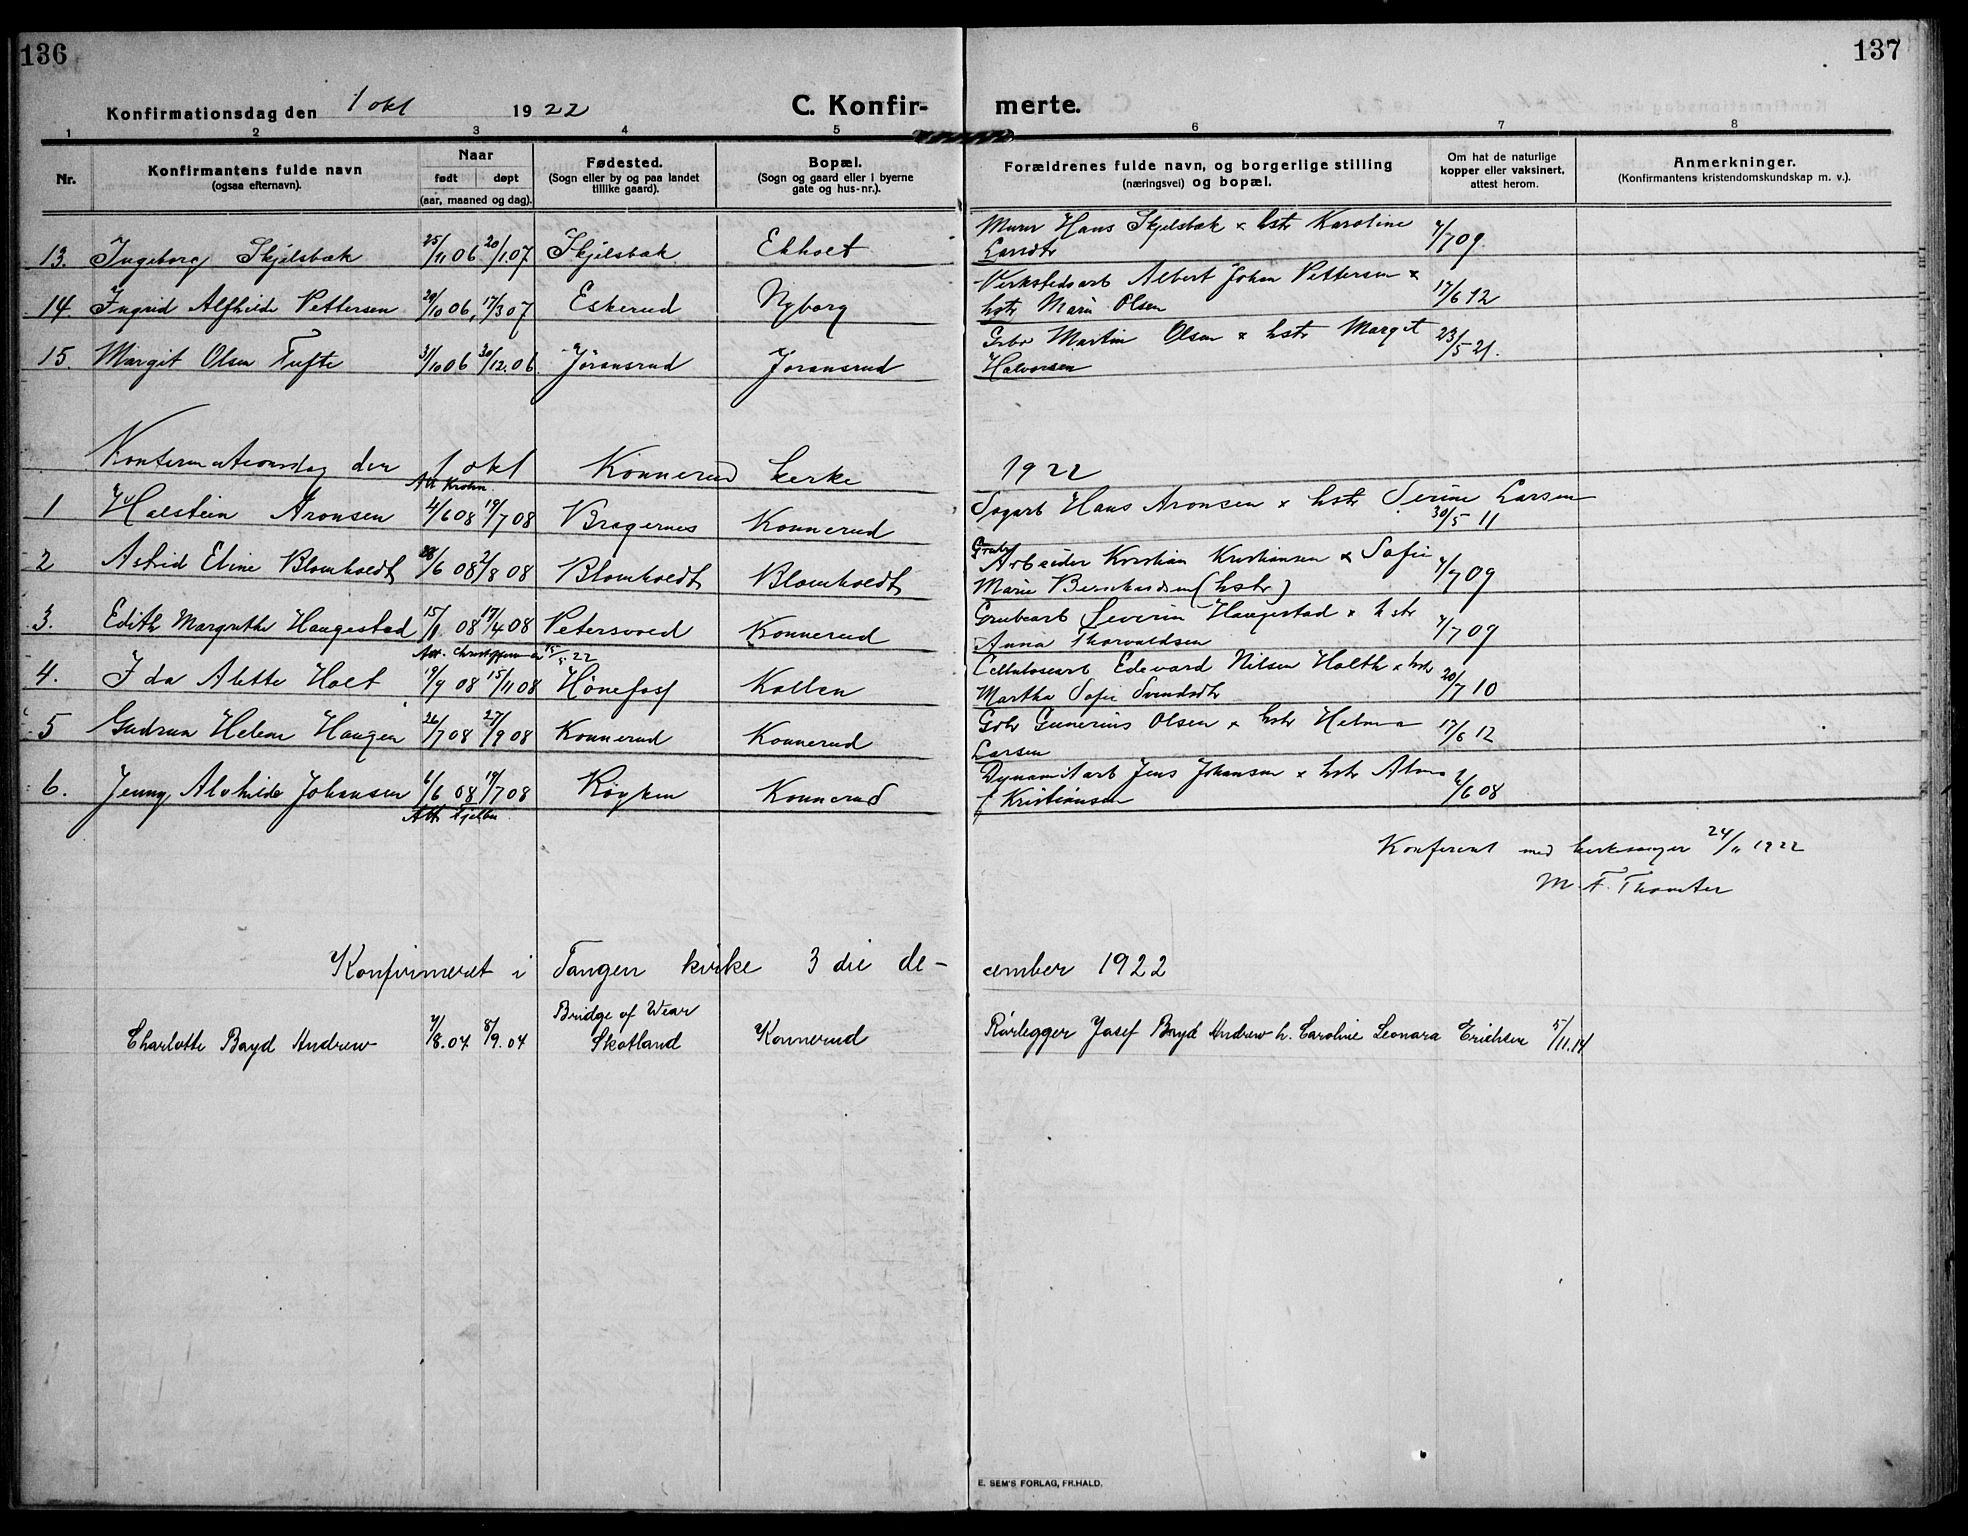 136
137
Konfirmationsdag den 1 okt 1922
C. Konfir-
merte.
1 2 3 4 5 6 7 8
Nr.
Konfirmantens fulde navn
(ogsaa efternavn).
Naar
født døpt
(aar, maaned og dag).
Fødested.
(Sogn eller by og paa landet
tillike gaard).
Bopæl.
(Sogn og gaard eller i byerne
gate og hus-nr.).
Forældrenes fulde navn, og borgerlige stilling
(næringsvei) og bopæl.
Om hat de naturlige
kopper eller vaksinert,
attest herom.
Anmerkninger.
(Konfirmantens kristendomskundskap m. v.).
Murer Hans Skjelsbæk & hstr Karoline
13. Ingeborg Skjelsbæk 25/11 06 20/1 07 Skjelsbæk Ekholt Larsdtr 7/7 09
Verkstedsarb Albert Johan Pettersen &
14 Ingrid Alfhilde Pettersen 29/10 06, 17/3 07 Eskerud Nyborg hstr Marie Olsen 17/6 12
Gbr Martin Olsen & hstr Margit
15. Margit Olsen Tufte 31/10 06 30/12. 06 Jøransrud Jøransrud Halvorsen 23/5 21.
Konfirmationsdag den 1 okt Konnerud kirke 1922
Att Krohn
1 Halstein Aronsen 4/6 08 19/7 08 Bragernes Konnerud Sagarb Hans Aronsen & hstr Serine Larsen 30/5 11
2 Astrid Eline Blomholdt 28/6 08 2/8 08 Blomholdt Blomholdt Grube Arbeider Kristian Kristiansen & Sofie
Marie Bernhardsen (hstr) 7/7 09
3. Edith Margrethe Haugestad 15/1 08 17/4 08 Konnerud Grubearb Severin Haugestad & hstr
Anna Thorvaldsen 7/7 09
4. Ida Alette Holt 19/9 08 15/11 08 Hønefoss Kollen Cellulosearb Edevard Nilsen Holth & hstr
Martha Sofie Svendsdtr 20/7 10
5 Gudrun Helene Haugen 26/7 08 27/9 08 Konnerud Konnerud Gbr Gunerius Olsen & hstr Helma
Larsen 17/6 12
6. Jenny Alvhilde Johansen 6/6 08 19/7 08 Røyken Konnerud Dynamitarb Jens Johansen & hstr Alma
f Kristiansen /6 08
Konferert med kirkesanger 24/11 1922
M. F. Thomter
Konfirmeret i Tangen kirke 3die de-
cember 1922
Charlotte Boyd Andrew 7/8. 04 8/9. 04 Bridge of Wear
Skotland Konnerud Rørlegger Josef Boyd Andrew h. Caroline Leonara Erichsen 5/11. 14
E. SEM'S FORLAG, FR.HALD.